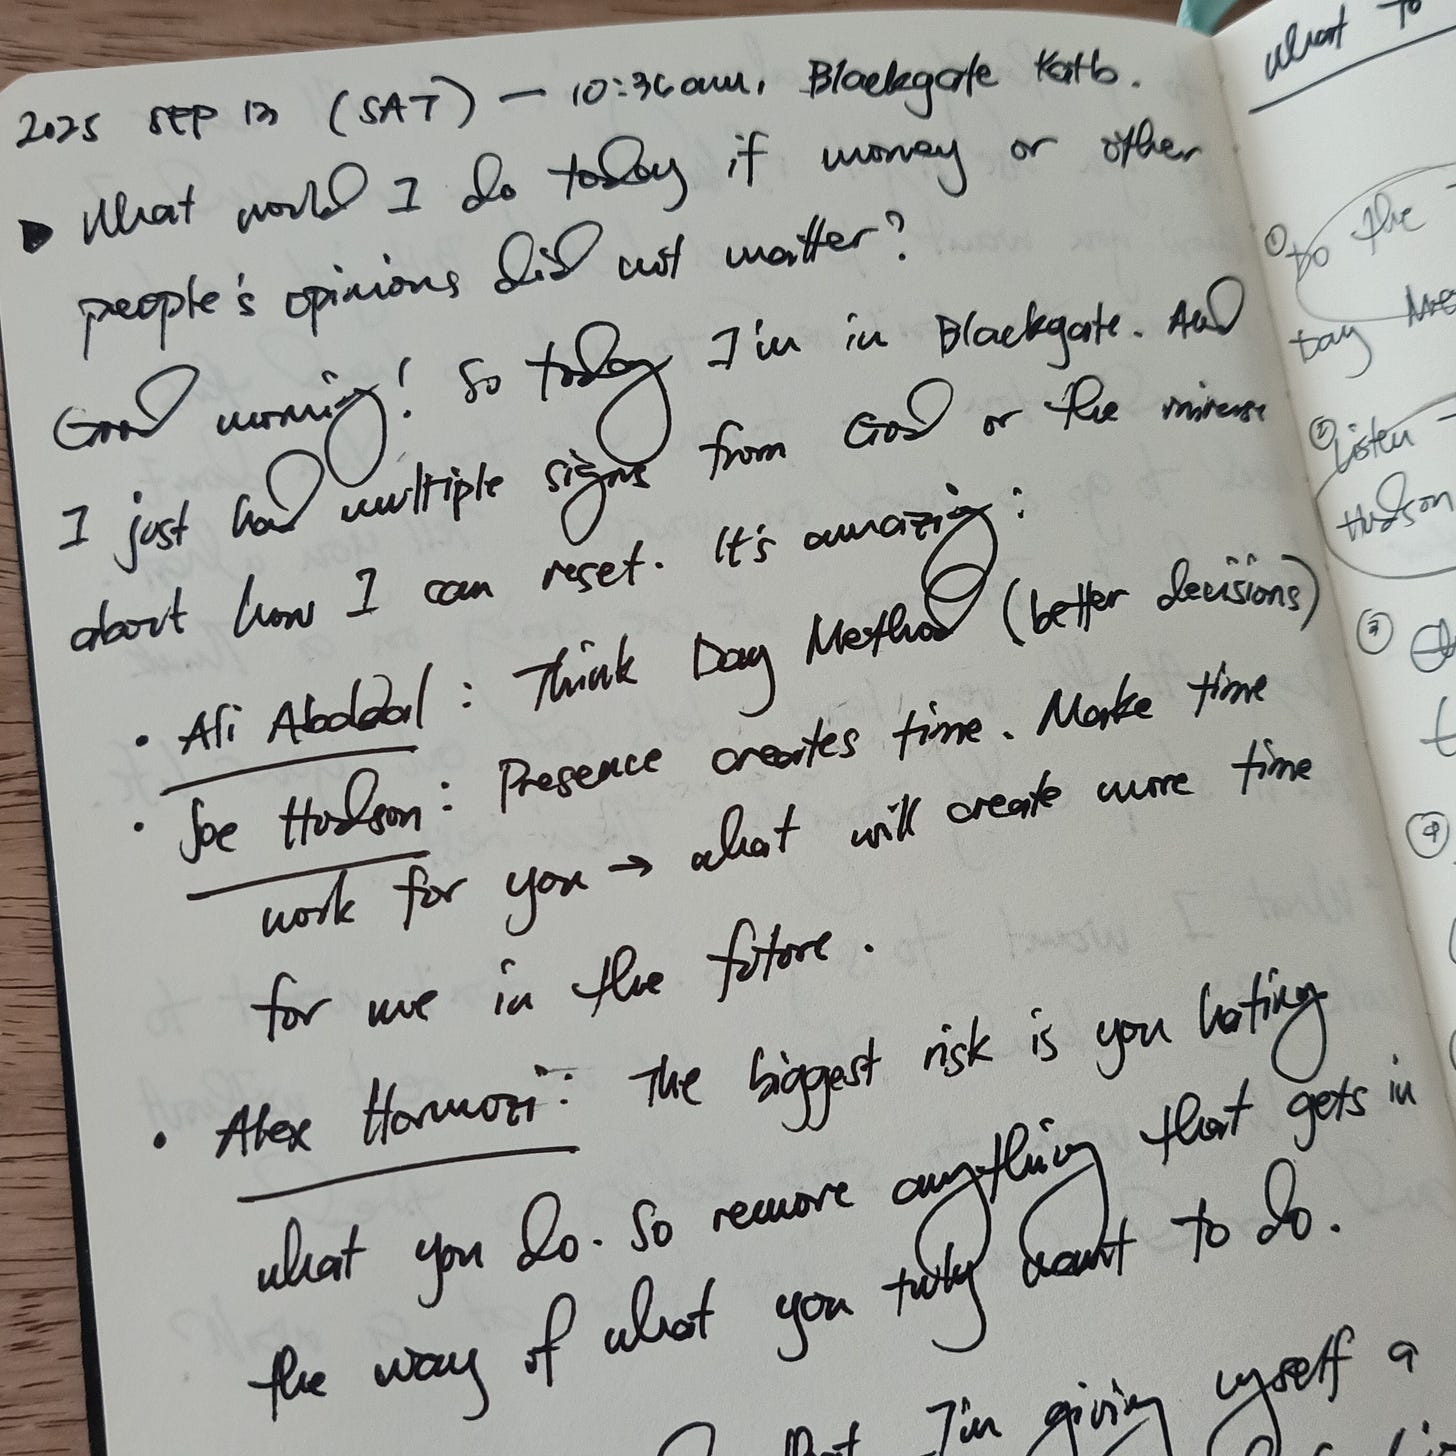 2025 SEP 13 (SAT) — 10:36am, Blackgate Katb.
▶ What would I do today if money or other
people's opinions did not matter?
Good morning! So today I'm in Blackgate. And
I just had multiple signs from God or the universe
about how I can reset. It's amazing:
• Ali Abdaal: Think Day Method (better decisions)
• Joe Hudson: Presence creates time. Make time
work for you → what will create more time
for me in the future.
• Alex Hormozi: The biggest risk is you hating
what you do. So remove anything that gets in
the way of what you truly want to do.
I'm giving myself a
what to
① Do the
Day
② Listen
Hudson
③
④